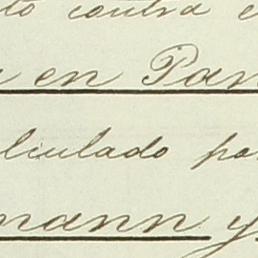 to contra e
a en Pan
lculado par
mann y